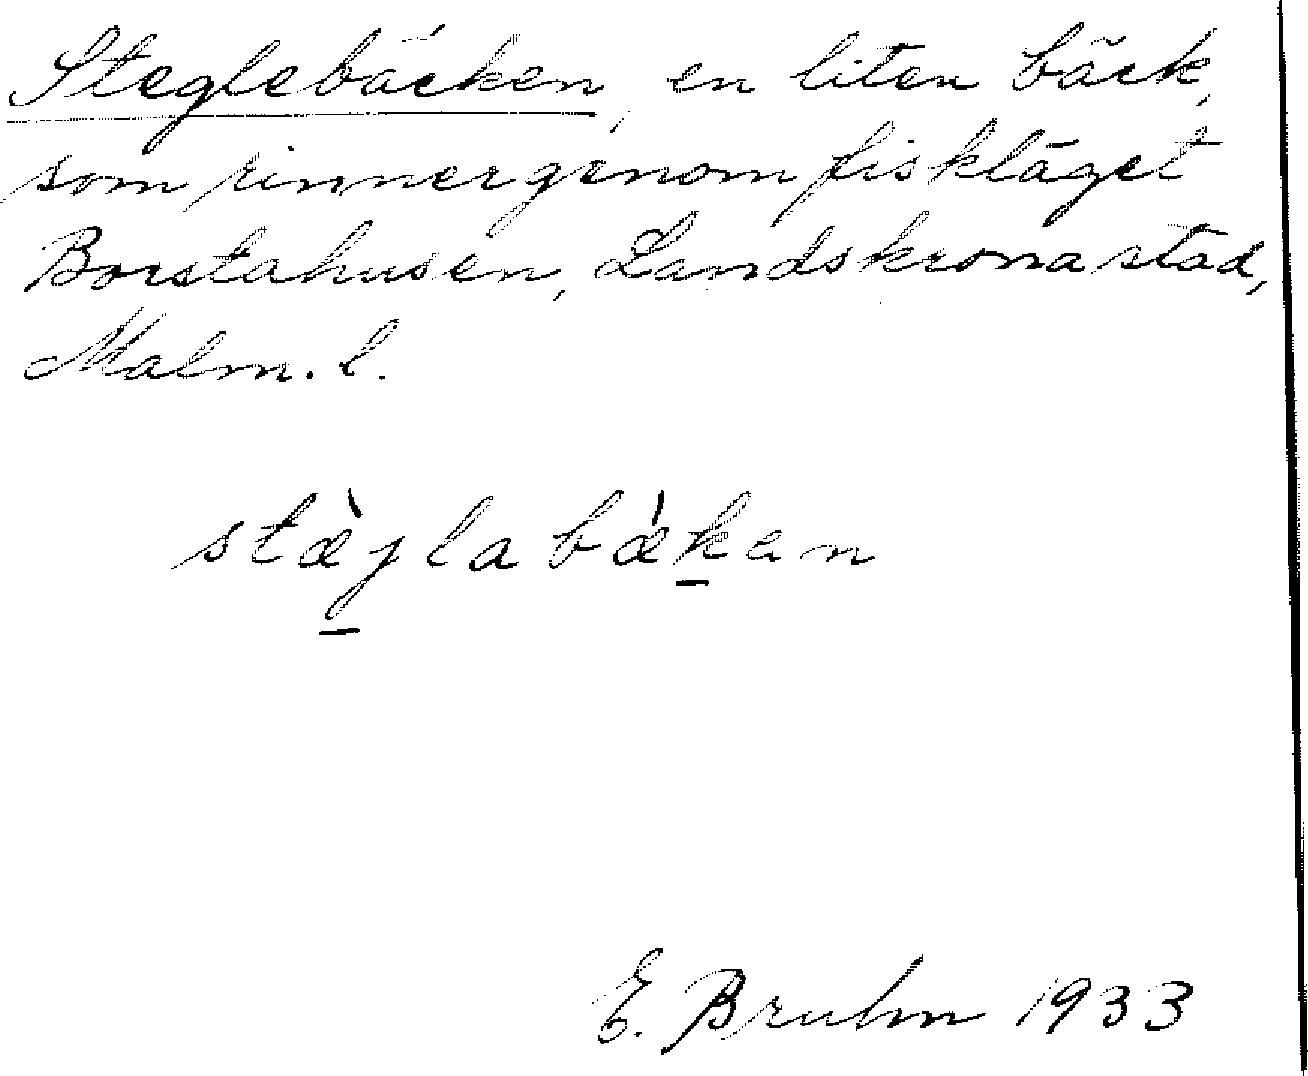 Steglebäcken, en liten bäck,
som rinner genom fiskläget
Borstahusen, Landskrona stad,
Malm. l.
stæ̀j̱labǽḵan
E. Bruhn 1933